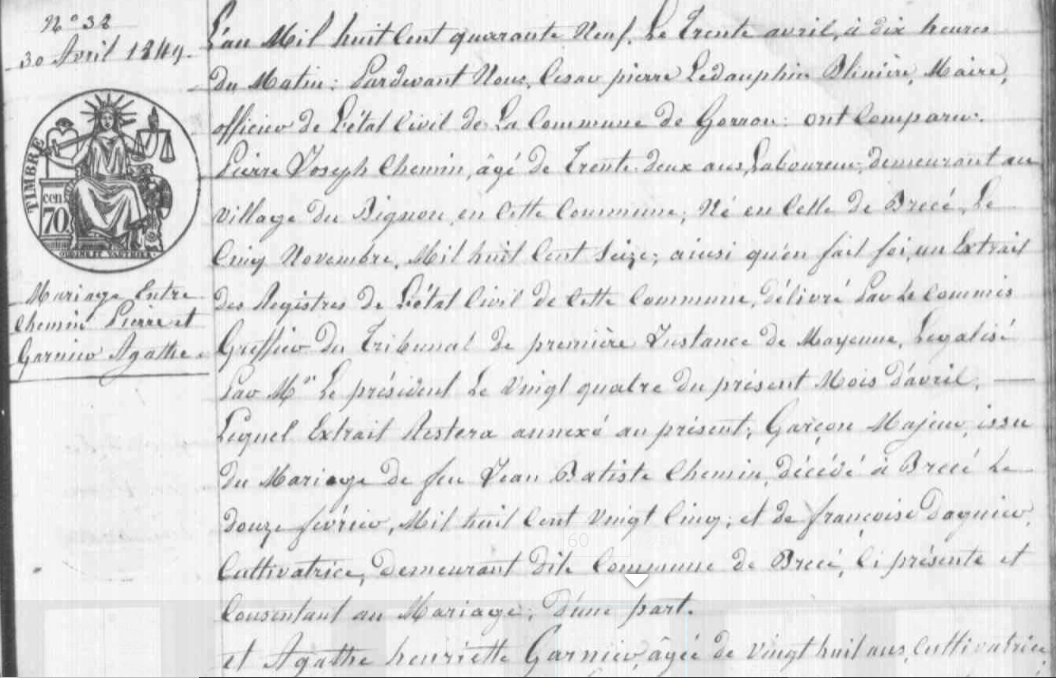 N° 32
30 Avril 1849.
TIMBRE
cen.
70
Mariage Entre
Chemin Pierre et
Garnier Agathe.
L'an Mil huit Cent quarante Neuf, Le Trente avril, à dix heures
du Matin: Pardevant Nous, Cesar pierre Ledauphin Blinière, Maire,
officier de L'état Civil de La Commune de Gorron: ont Comparu:
Pierre Joseph Chemin, âgé de Trente-deux ans, Laboureur, demeurant au
village du Bignon, en Cette Commune, Né en Celle de Brecé, Le
Cinq Novembre, Mil huit Cent Seize; ainsi qu'en fait foi, un Extrait
des Registres de L'état Civil de Cette Commune, délivré Par Le Commis
Greffier du Tribunal de première Instance de Mayenne, Legalisé
Par Mr Le président Le vingt quatre du présent Mois d'avril,
Lequel Extrait Restera annexé au présent; Garçon Majeur, issu
du Mariage de feu Jean Batiste Chemin, décédé à Brecé Le
douze février, Mil huit Cent Vingt Cinq; et de françoise Dagnier,
Cultivatrice, demeurant dite Commune de Brecé, Ci présente et
Consentant au Mariage; d'une part.
et Agathe henriette Garnier, âgée de vingt huit ans, Cultivatrice,